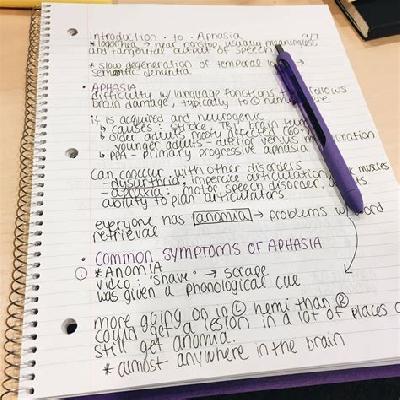 Introduction - to - Aphasia
* logorrhea → near nonstop, usually meaningless
and tangential output of speech
* slow degeneration of temporal →
semantic dementia
• APHASIA
difficulty w/ language functions follows
brain damage, typically to Ⓛ
it is acquired and neurogenic
↳ causes: stroke,
↳ older adults mostly
younger adults -
↳ PPA - primary progressive aphasia
can concur with other disorders
- dysarthria: imprecise articulation, muscles
- apraxia: motor speech disorder,
ability to plan articulators
everyone has anomia → problems w/ word
retrieval
• COMMON SYMPTOMS OF APHASIA
* Anomia
video: "snave" → scrape
was given a phonological cue
more going on in Ⓛ hemi than Ⓡ
could get a lesion in a lot of places
still get anomia.
* almost anywhere in the brain